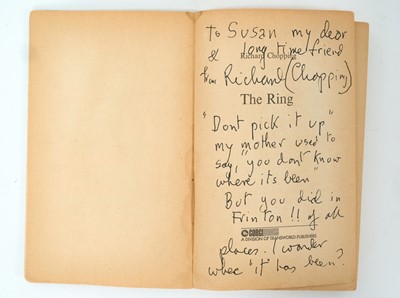 To Susan my dear
& long time friend
Richard Chopping
from Richard (Chopping)
The Ring
"Dont pick it up"
my mother used to
say, "you don't know
where its been"
But you did in
Frinton !! of all
CORGI
A DIVISION OF TRANSWORLD PUBLISHERS
places. I wonder
where 'it' has been?